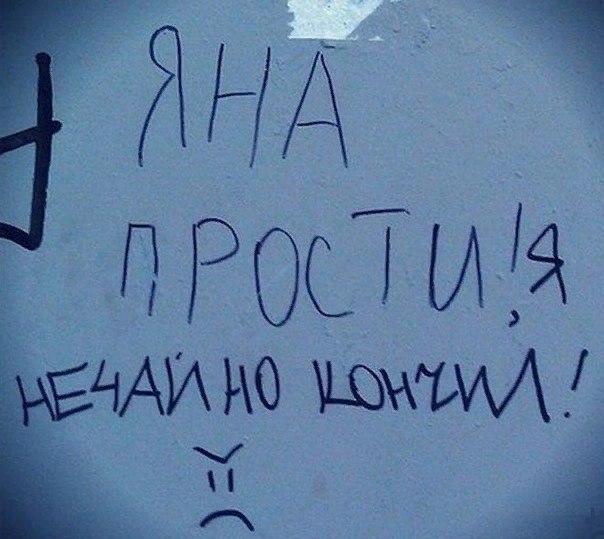 ЯНА
ПРОСТИ!,Я
НЕЧАЙНО КОНЧИЛ!